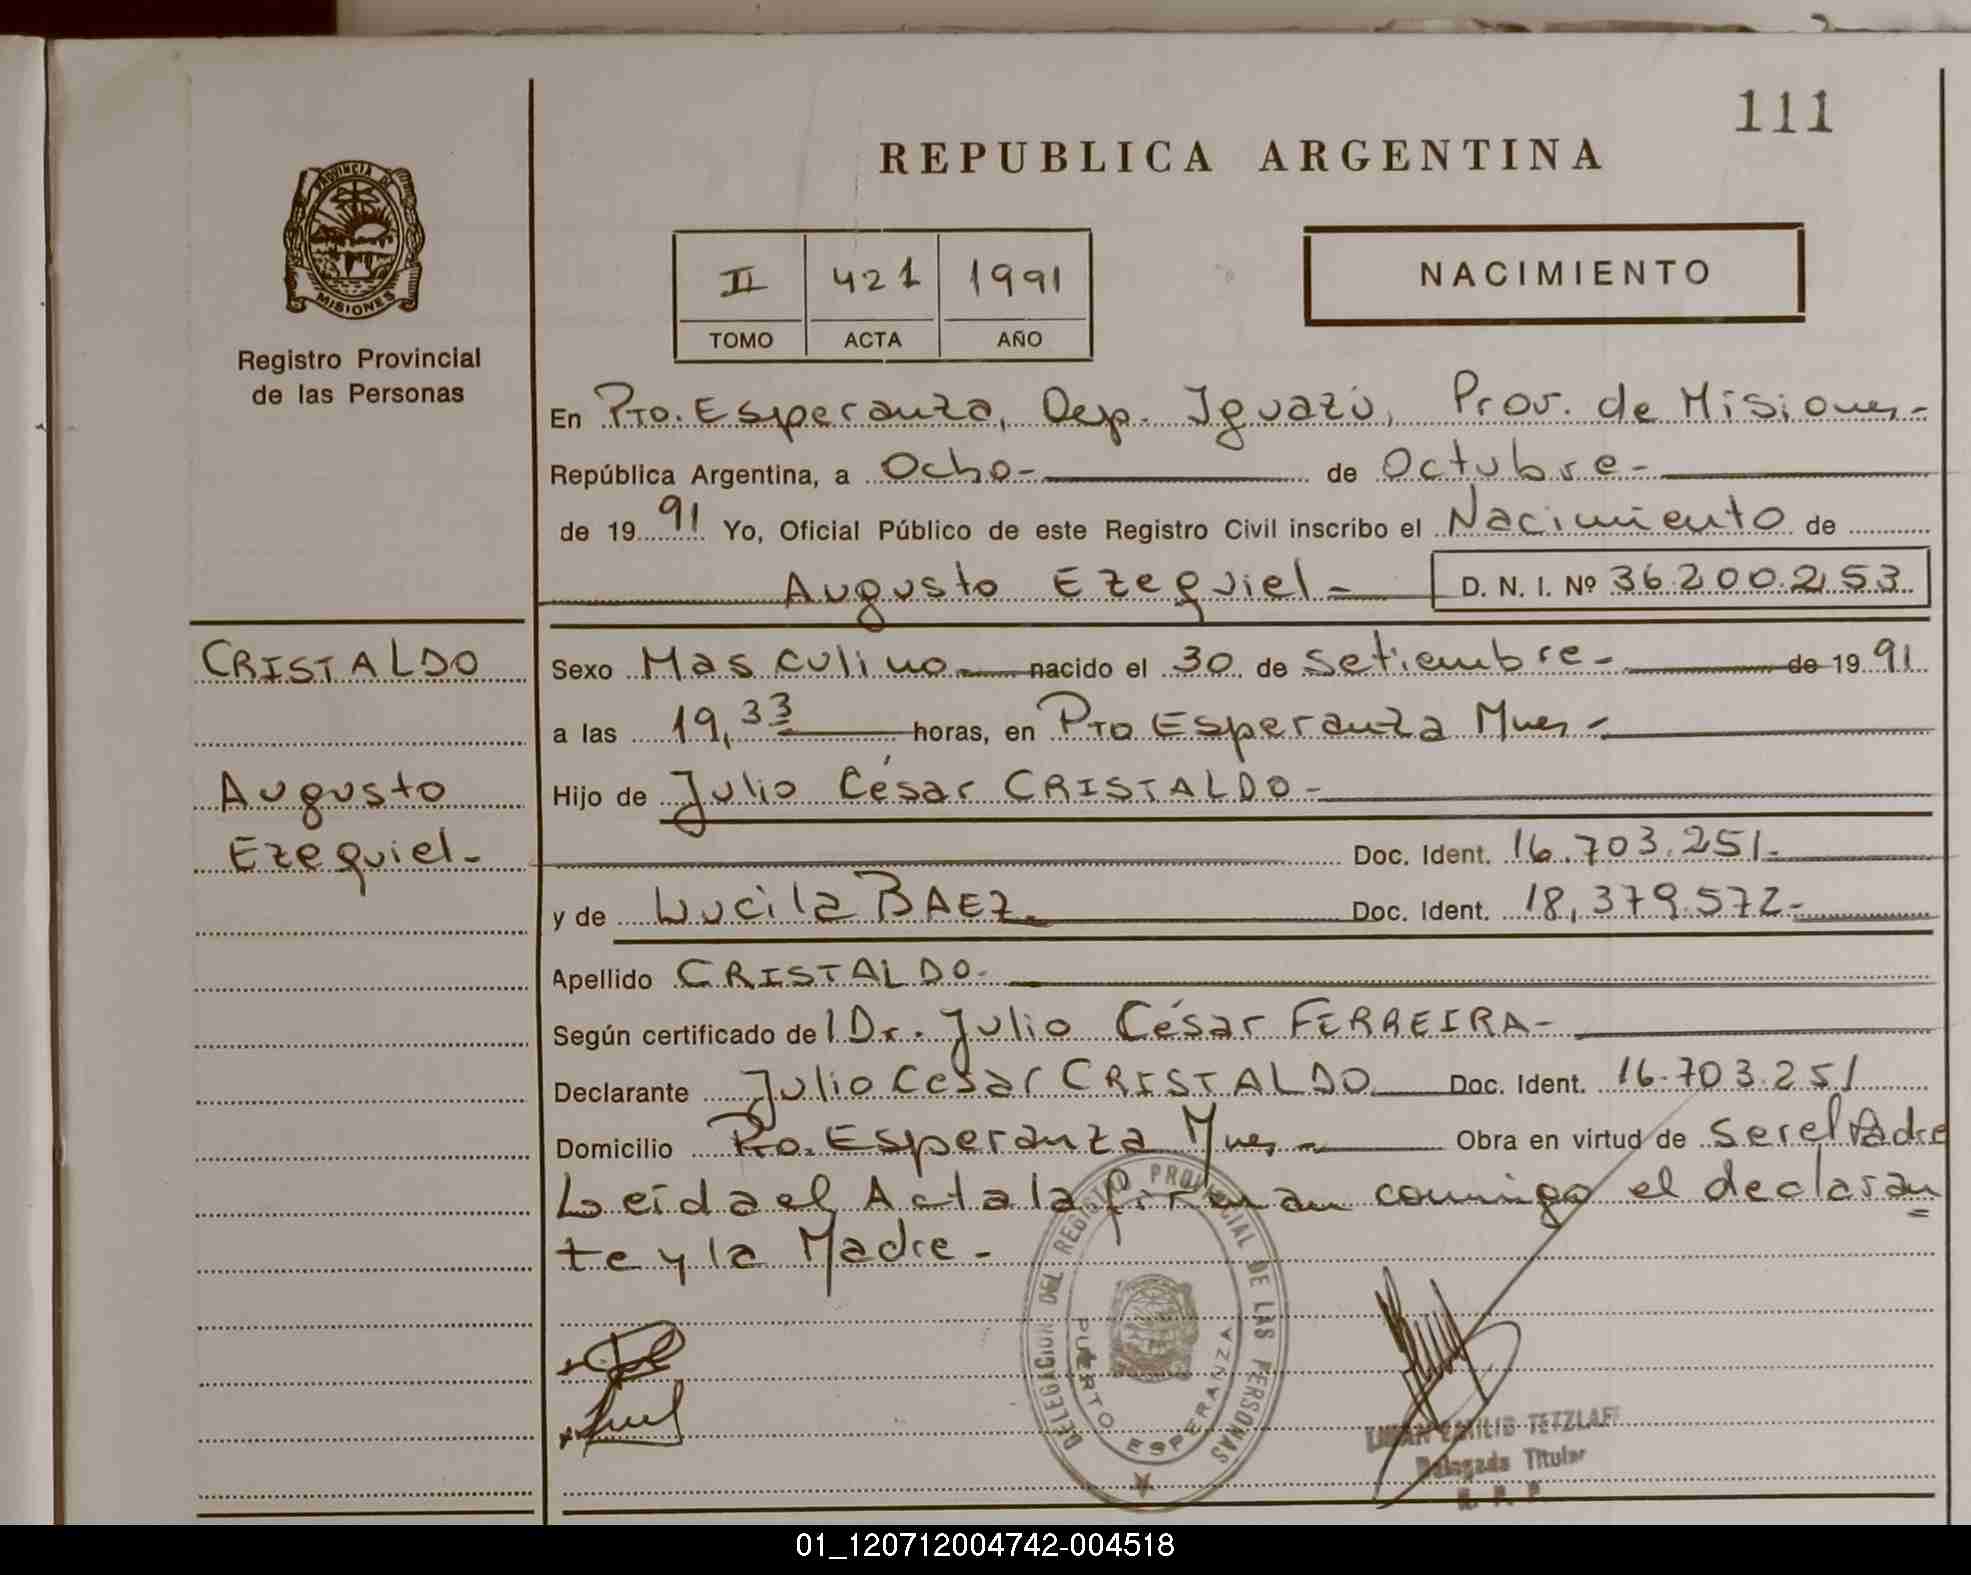 111
REPUBLICA ARGENTINA
PROVINCIA DE
MISIONES
Registro Provincial
de las Personas
II 421 1991
TOMO ACTA AÑO
NACIMIENTO
En Pto. Esperanza, Dep. Iguazú, Prov. de Misiones-
República Argentina, a Ocho- de Octubre-
de 1991 Yo, Oficial Público de este Registro Civil inscribo el Nacimiento de
Augusto Ezequiel- D. N. I. Nº 36.200.253
CRISTALDO
Augusto
Ezequiel-
Sexo Masculino nacido el 30 de Setiembre- de 1991
a las 19,33 horas, en Pto Esperanza Mnes-
Hijo de Julio César CRISTALDO-
Doc. Ident. 16.703.251-
y de Lucila BAEZ Doc. Ident. 18,379.572-
Apellido CRISTALDO-
Según certificado del Dr. Julio César FERREIRA-
Declarante Julio Cesar CRISTALDO Doc. Ident. 16.703.251
Domicilio Pto. Esperanza Mnes- Obra en virtud de ser el Padre
Leída el Acta la firman conmigo el declaran
te y la Madre-
DELEGACION DEL REGISTRO PROVINCIAL DE LAS PERSONAS
PUERTO ESPERANZA
EMILIO TETZLAFF
Titular
R. P. P.
01_120712004742-004518